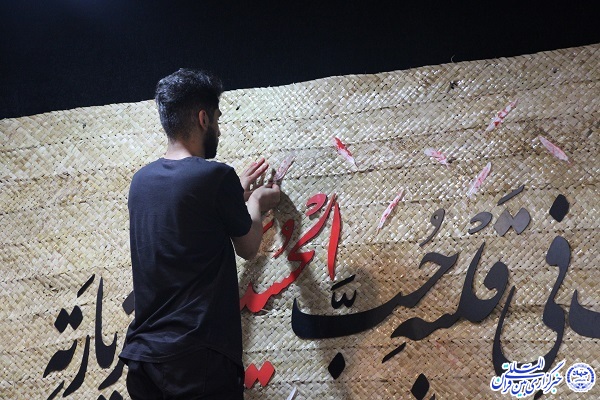 في قلبه حُبَّ الحُسَين زيارَتِهِ
خبرگزاری بین‌المللی قرآن